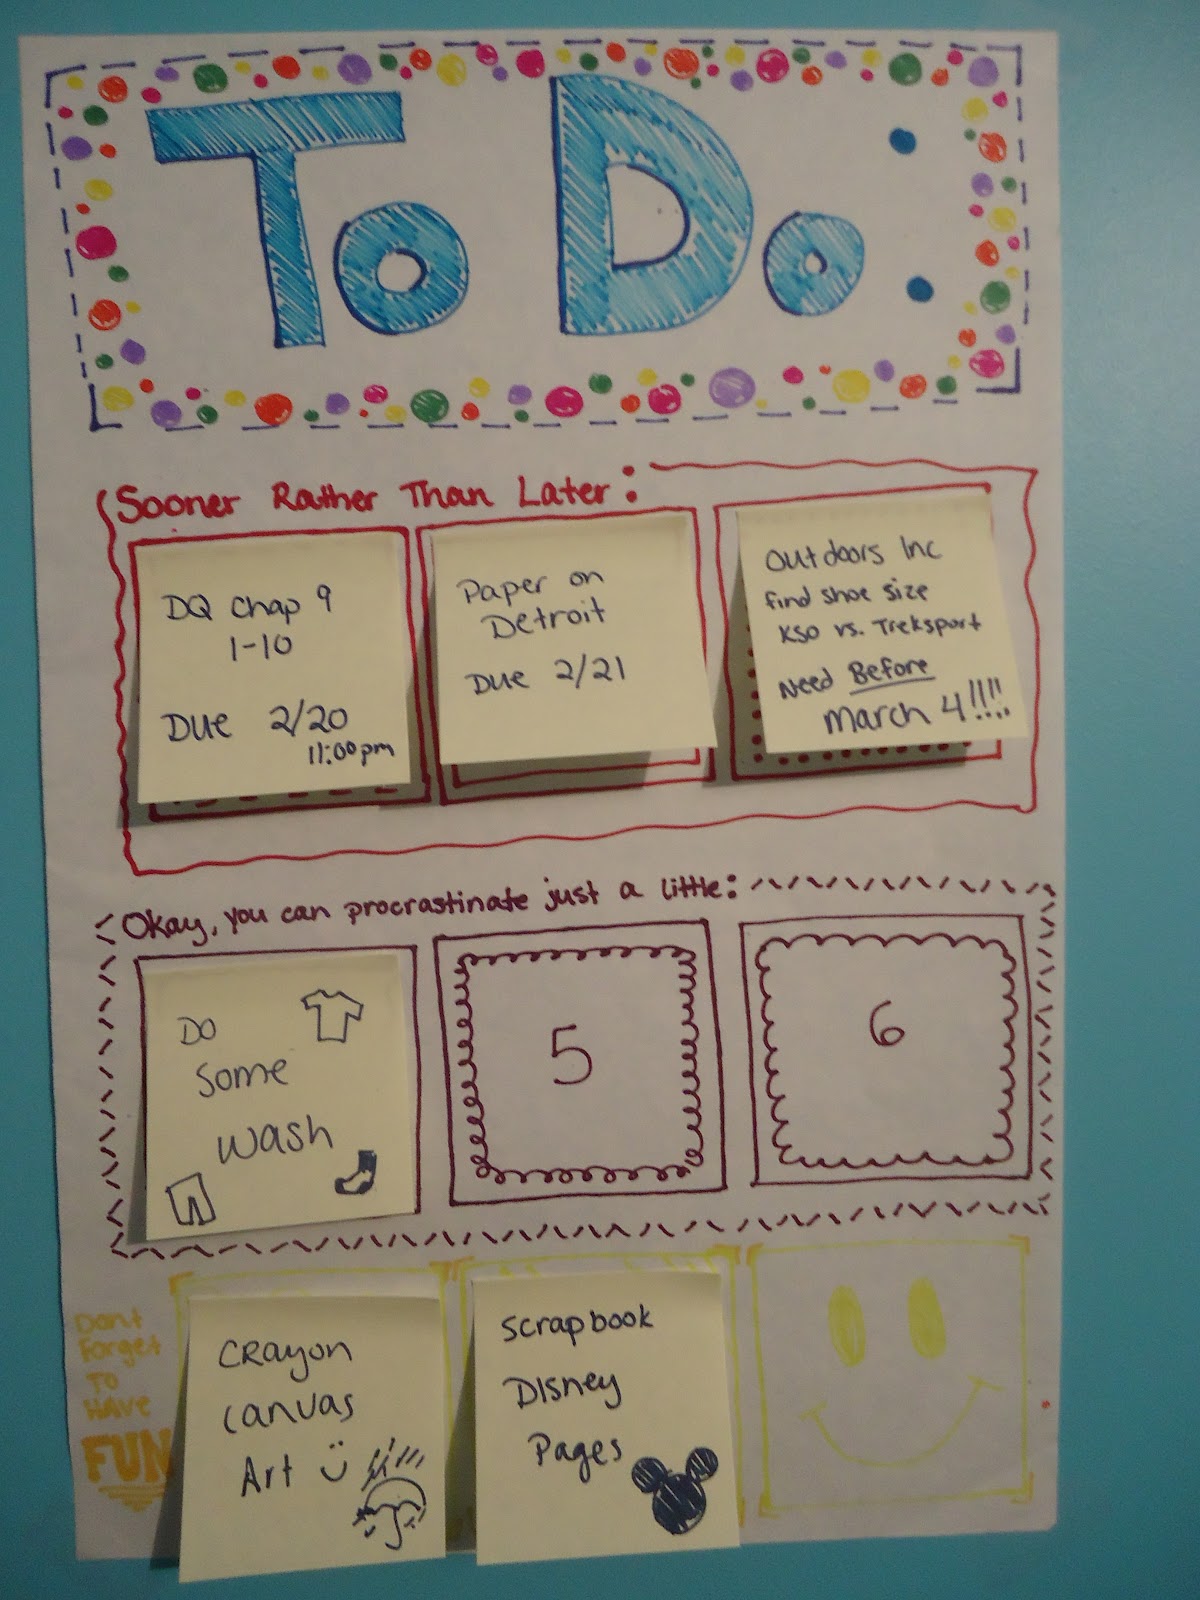 To Do:
Sooner Rather Than Later:
DQ Chap 9
1-10
Due 2/20
11:00pm
Paper on
Detroit
Due 2/21
Outdoors Inc
find shoe size
KSO vs. Treksport
Need Before
March 4!!!!
Okay, you can procrastinate just a little:
Do
Some
Wash
5
6
Dont
Forget
To
Have
FUN
Crayon
Canvas
Art
Scrapbook
Disney
Pages